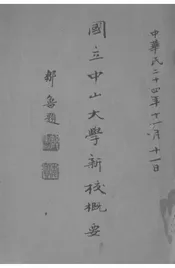 中華民二十四年十一月十一日
國立中山大學新校概要
鄒魯題